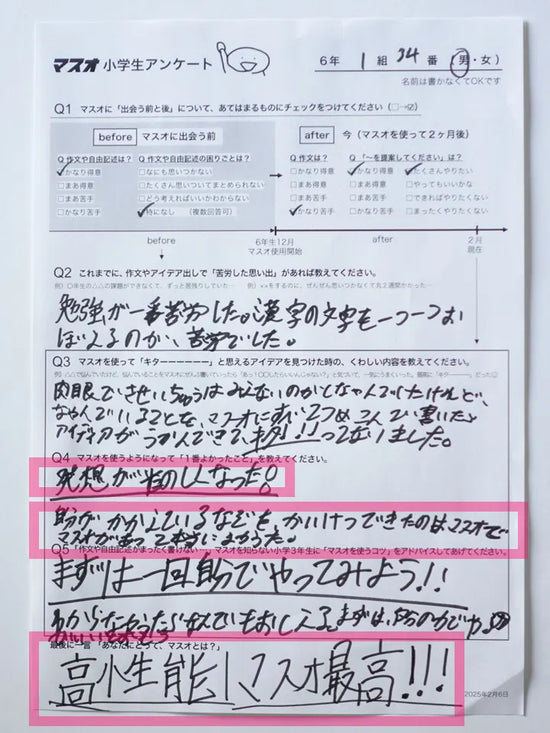 マスオ 小学生アンケート
6年 1 組 34 番 (男・女)
名前は書かなくてOKです
Q1 マスオに「出会う前と後」について、あてはまるものにチェックをつけてください (□→☑)
before マスオに出会う前
after 今 (マスオを使って2ヶ月後)
Q 作文や自由記述は?
☑かなり得意
□まあ得意
□まあ苦手
□かなり苦手
Q 作文や自由記述の困りごとは?
□なにも思いつかない
□たくさん思いついてまとめられない
□どう考えればいいかわからない
☑特になし (複数回答可)
Q 作文は?
□かなり得意
□まあ得意
□まあ苦手
☑かなり苦手
Q 「〜を提案してください」は?
☑かなり得意
□まあ得意
□まあ苦手
□かなり苦手
☑たくさんやりたい
□やってもいいかな
□できればやりたくない
□まったくやりたくない
before
6年生12月
マスオ使用開始
after
2月
現在
Q2 これまでに、作文やアイデア出しで「苦労した思い出」があれば教えてください。
勉強が一番苦労した。漢字の文字を一つ一つお
ぼえるのが、苦労でした。
Q3 マスオを使って「キターーーーーー」と思えるアイデアを見つけた時の、くわしい内容を教えてください。
肉眼で
はみえないのかとなやんでいたけれど、
なやんでいることを、マスオに
書いたら
アイディアがうかんできて、キタ!!ってないました。
Q4 マスオを使うようになって「1番よかったこと」を教えてください。
発想が楽のしくなった!
自分がかかえているなぞを、かいけつできたのはマスオで
マスオがあって本当によかった。
Q5 「作文や自由記述がまったく書けない…」マスオを知らない小学3年生に「マスオを使うコツ」をアドバイスしてあげてください。
まずは一回自分でやってみよう!!
わからなかったら
おしえる。まずは、自分の力でやる
最後に一言「あなたにとって、マスオとは?」
高小生能しマスオ最高!!!
2025年2月6日